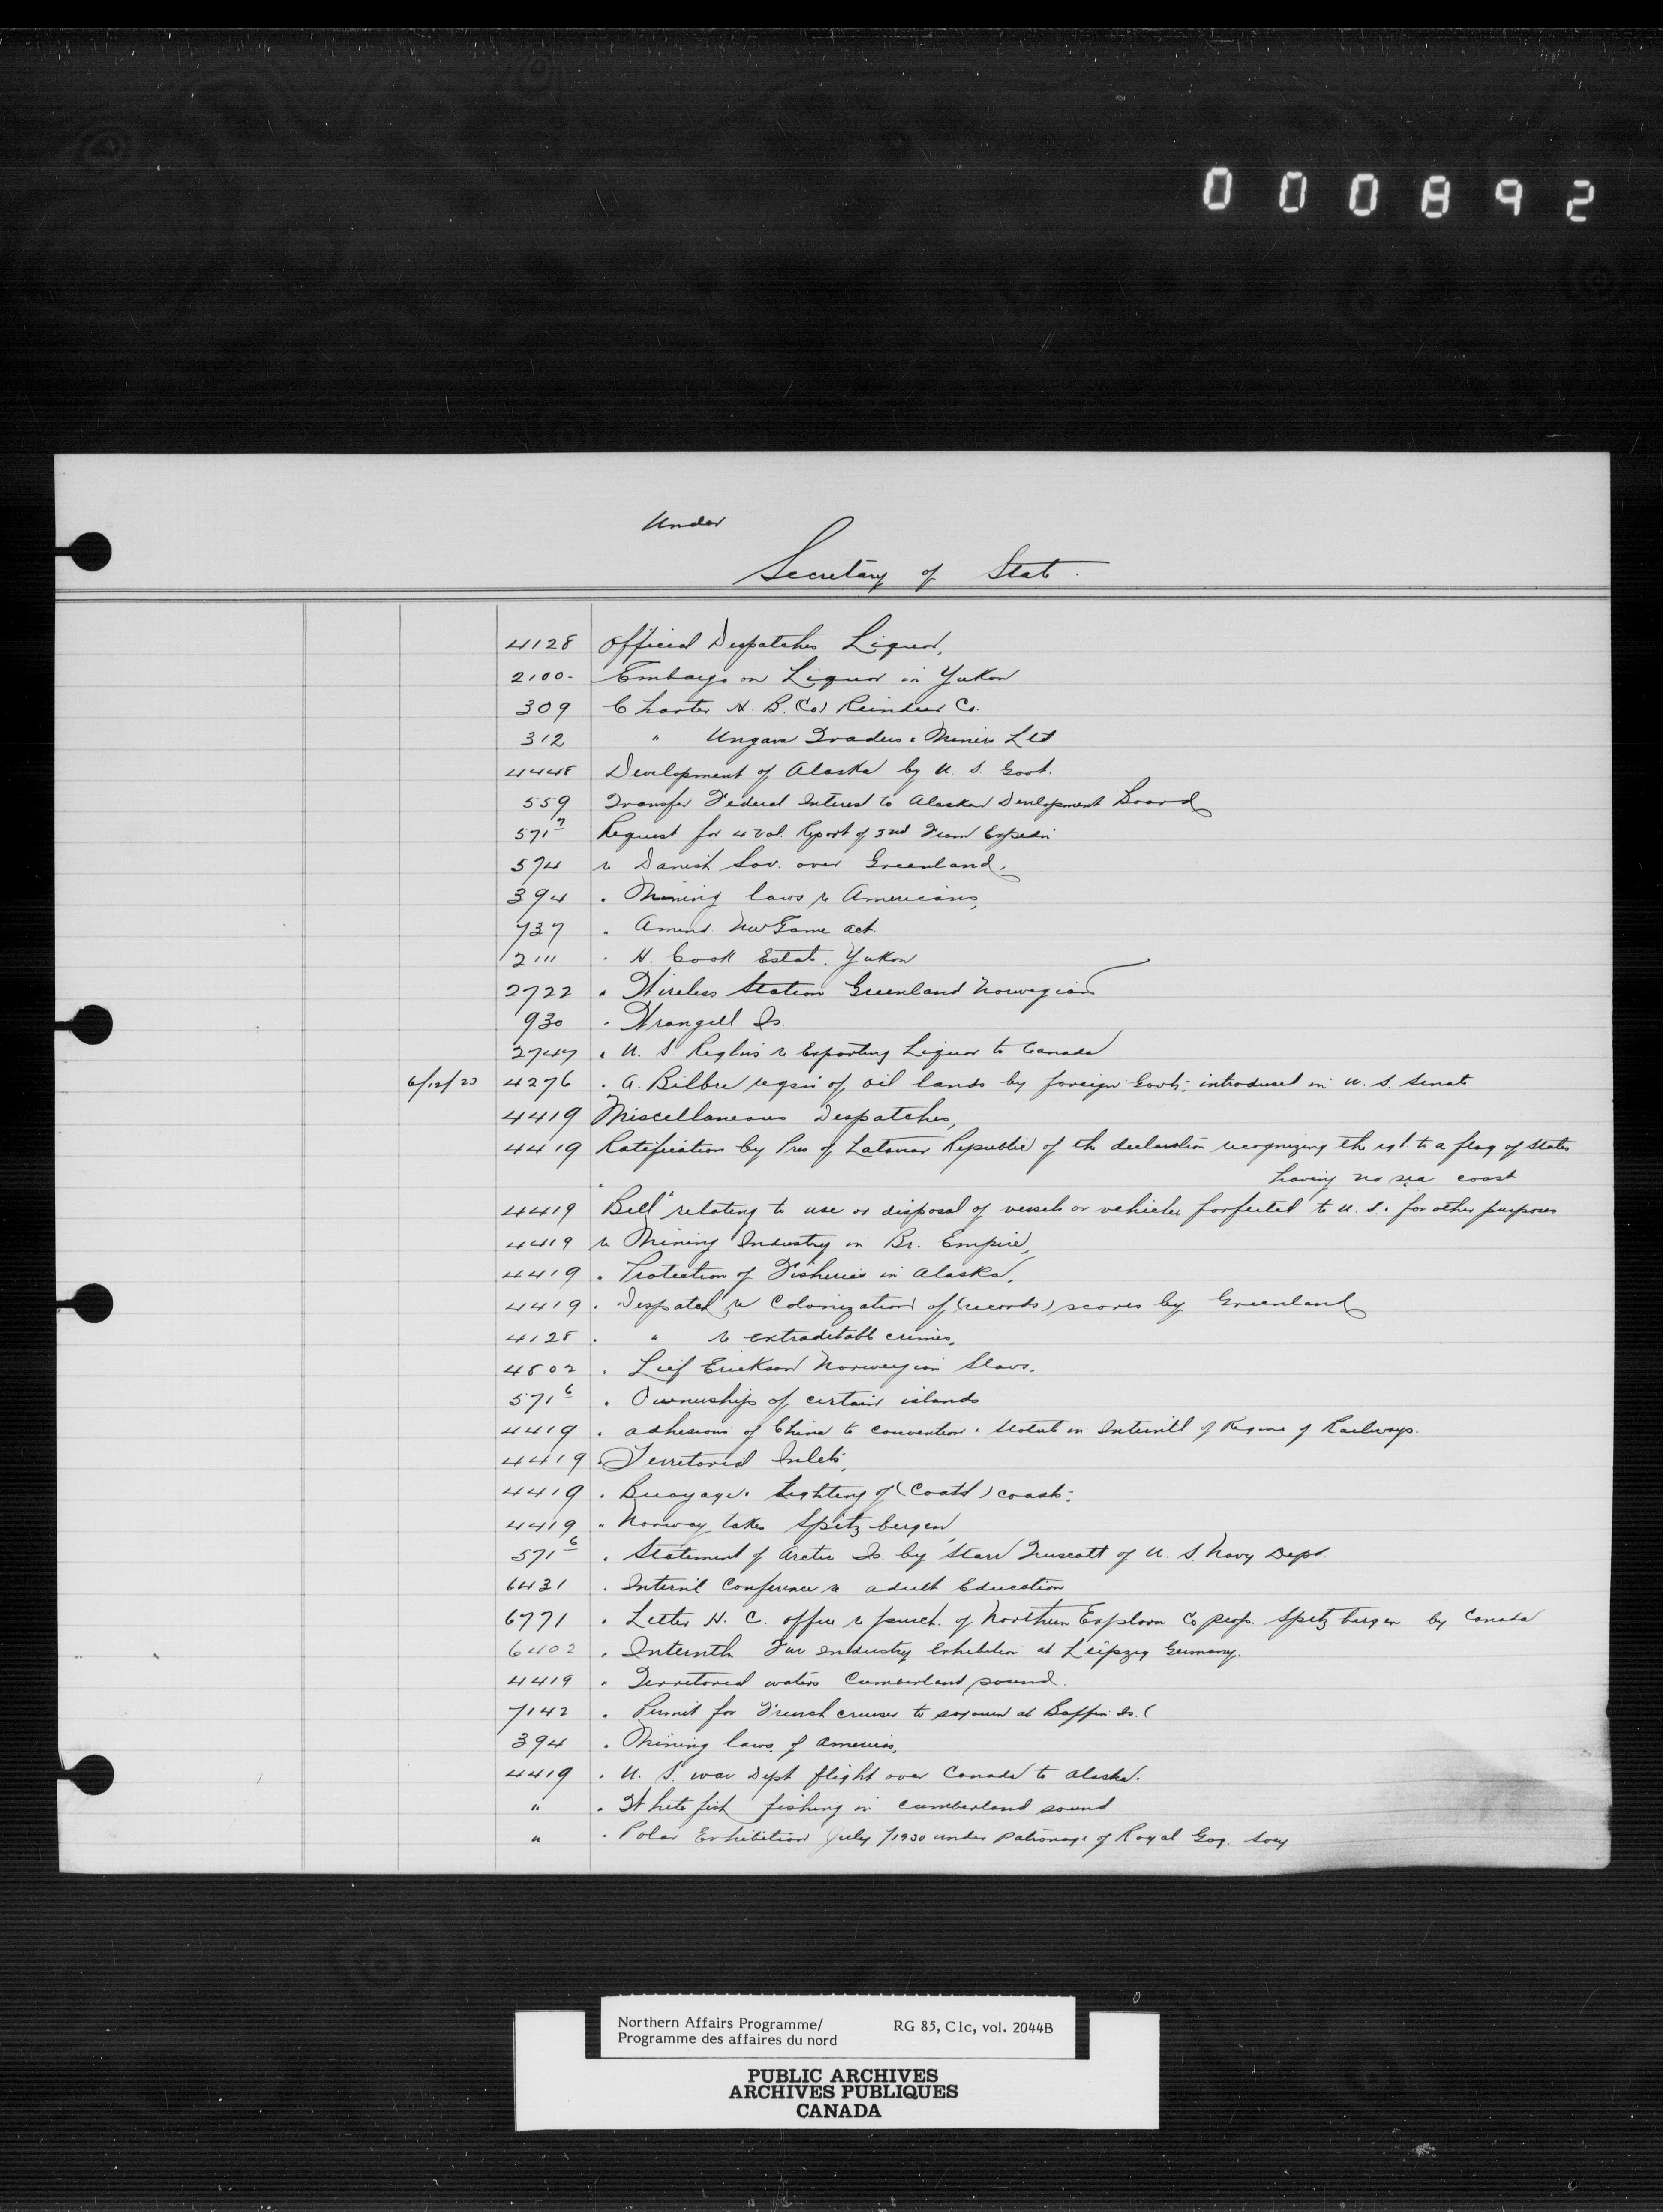 000892
Under
Secretary of State.
4128 Official Despatches Liquor.
2100- Embargo on Liquor in Yukon
309 Charter H. B. (Co) Reindeer Co.
312 " Ungava Traders & Miners Ltd
4448 Development of Alaska by U. S. Govt.
559 Transfer Federal Interest to Alaskan Development Board
571 7 Request for 4 vol. Report of 2nd Fram Expedn
574 re Danish Sov. over Greenland.
394 " Mining laws re Americans,
737 " Amend. NW Game act.
2111 " H. Cook Estate. Yukon
2722 " Wireless Station Greenland Norwegian
930 " Wrangell Is.
2747 " U. S Regl'ns re Exporting Liquor to Canada
6/12/23 4276 " A. Bilbre by foreign Govts. introduced in U. S. Senate
4419 Miscellaneous Despatches,
4419 Ratification by Pres. of Latavian Republic of the declaration recognizing the rgt. to a flag of States
having no sea coast
4419 "Bill" relating to use or disposal of vessels or vehicles forfeited to U. S. for other purposes
4419 re Mining Industry in Br. Empire,
4419 " Protection of Fisheries in Alaska.
4419 " Despatch re Colonization of (records) scores by Greenland
4128 " " re extraditable crimes,
4802 " Lief Erickson Norwegian
571 6 " Ownership of certain islands
4419 " adhesion of China to convention & Statute on Internatl of Regime of Railways.
4419 " Territorial Inlets,
4419 " Buoyage & Lighting of (Coatst) coasts.
4419 " Norway takes Spitzbergen
571 6 " Statement of Arctic Is. by Starr Truscott of U. S. Navy Dept.
6431 " Internl Conference re adult Education
6771 " Letter H. C. office re purch. of Northern Explorn Co prop. Spitzbergen by Canada
6402 " Internth Fur industry Exhibition at Leipzig Germany.
4419 " Territorial waters Cumberland sound.
7142 " Permit for French cruiser to sojourn at Baffin Is. (
394 " Mining laws of America,
4419 " U. S. war Dept flight over Canada to Alaska.
" " White fish fishing in Cumberland sound
" " Polar Exhibition July /1930 under patronage of Royal Gog. Socy
Northern Affairs Programme/ RG 85, C1c, vol. 2044B
Programme des affaires du nord
PUBLIC ARCHIVES
ARCHIVES PUBLIQUES
CANADA